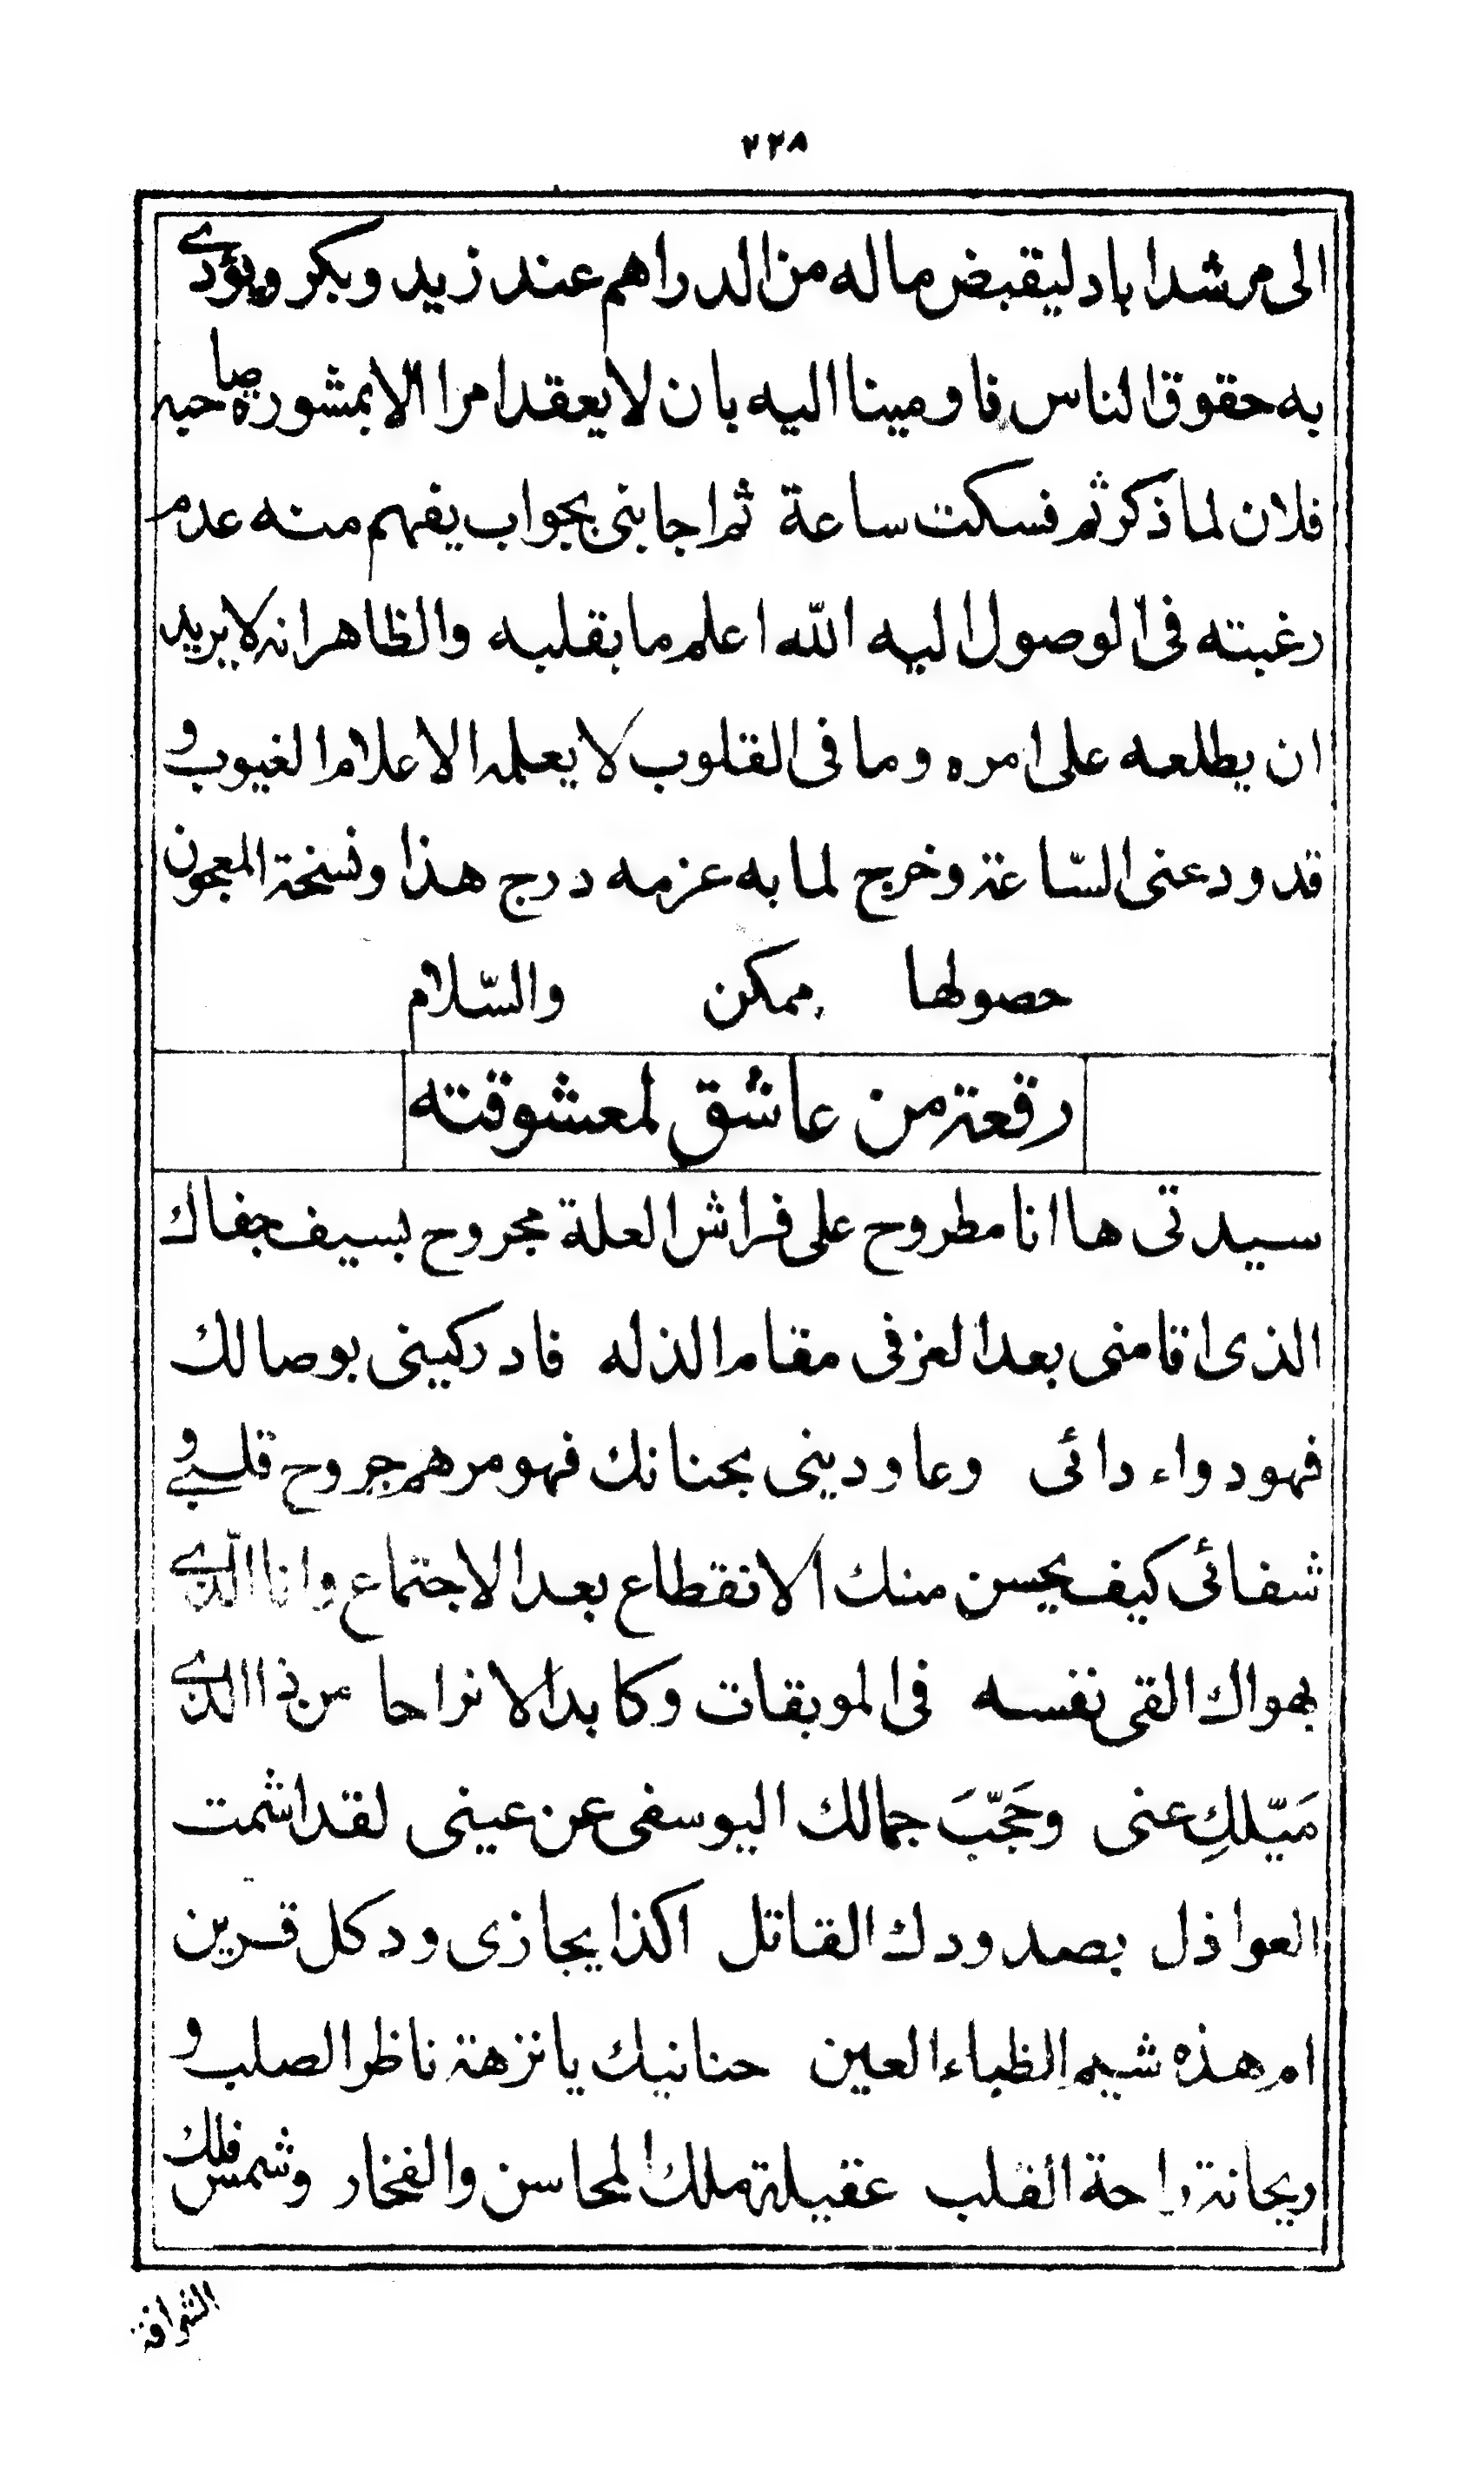 ٢٢٨
الى مرشداباد ليقبض ماله من الدراهم عند زيد وبكر ويؤدى
به حقوق الناس فاومينا اليه بان لا يعقد امرا الا بمشورة صاحبه
فلان لما ذكرتم فسكت ساعة ثم اجابنى بجواب يفهم منه عدم
رغبته فى الوصول اليه الله اعلم ما بقلبه والظاهر انه لا يريد
ان يطلعه على امره وما فى القلوب لا يعلمه الا علام الغيوب و
قد ودعنى السّاعة وخرج لما به عزمه درج هذا ونسخة المعجون
حصولها ممكن والسّلام
رقعة من عاشق لمعشوقته
سيدتى ها انا مطروح على فراش العلة مجروح بسيف جفاك
الذى اقامنى بعد العز فى مقام الذله فادركينى بوصالك
فهو دواء دائى وعاودينى بحنانك فهو مرهم جروح قلبى و
شفائى كيف يحسن منك الانقطاع بعد الاجتماع وانا الّذى
بهواك القى نفسه فى الموبقات وكابد الانراحا من ذا الذى
مَيّلكِ عنى وحَجّبَ جمالك اليوسفى عن عينى لقد اشمت
العواذل بصدودك القاتل اكذا يجازى ود كل قرين
ام هذه شيم الظباء العين حنانيك يا نزهة ناظر الصلب و
ريحانة راحة القلب عقيلة ملك المحاسن والفخار وشمس فلك
الشرافة